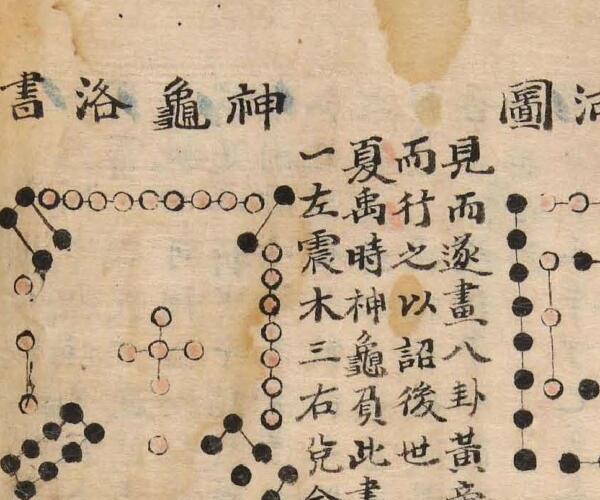 圖
見而遂畫八卦黃帝
而行之以詔後世
夏禹時神龜負此書
一左震木三右兌金
神龜洛書